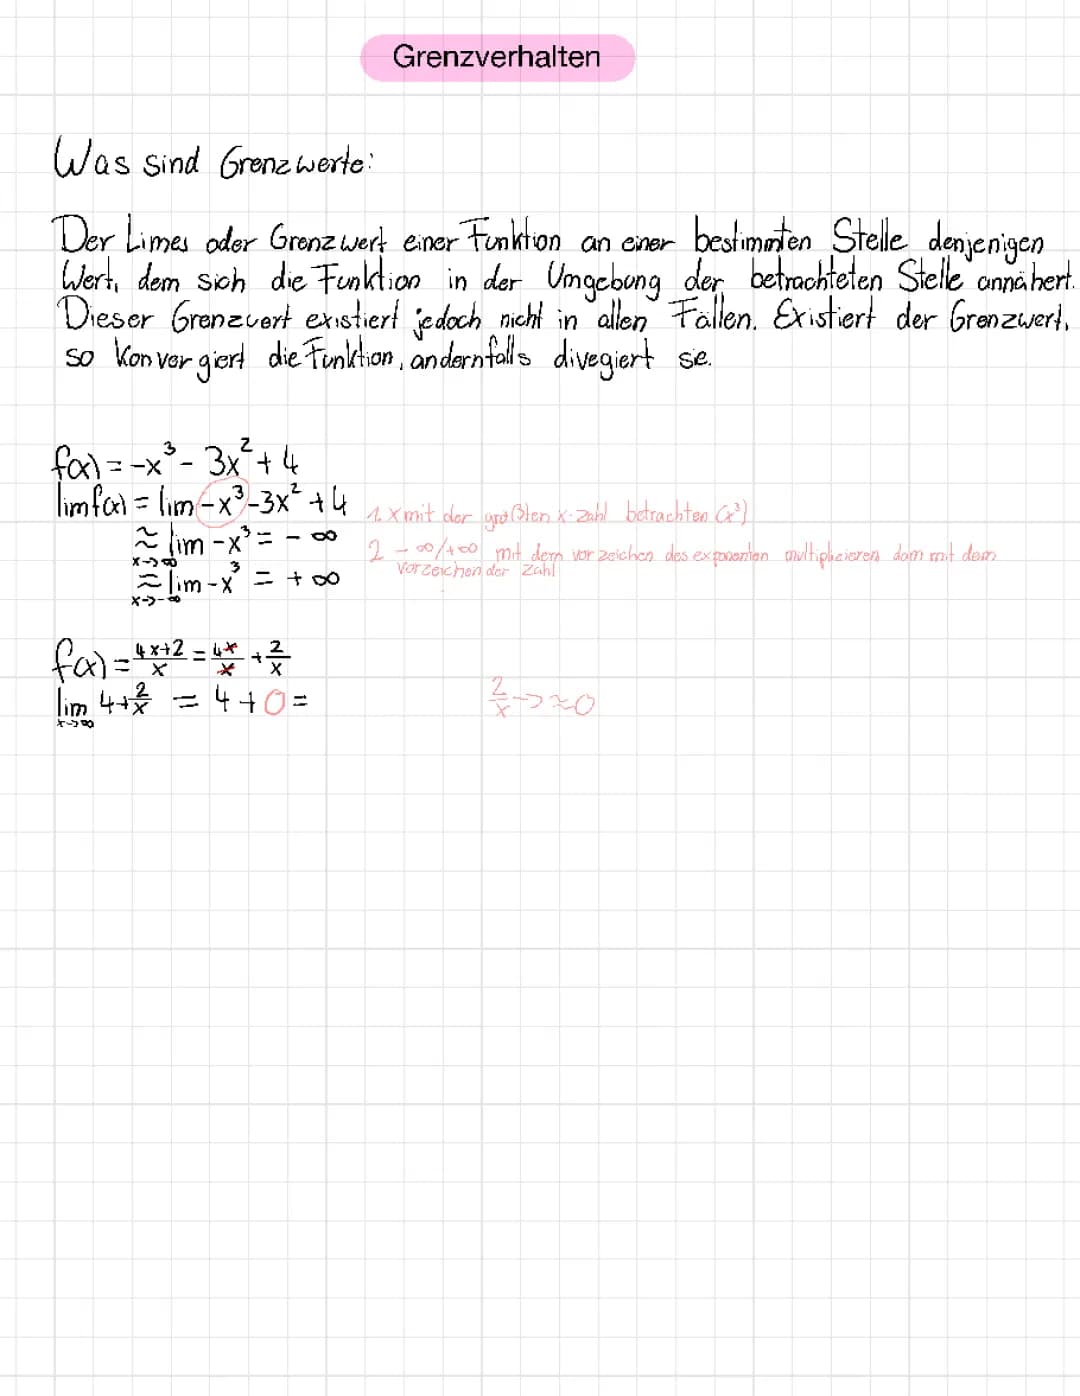 Grenzverhalten
Was sind Grenzwerte:
Der Limes oder Grenzwert einer Funktion an einer bestimmten Stelle denjenigen
Wert, dem sich die Funktion in der Umgebung der betrachteten Stelle annähert.
Dieser Grenzwert existiert jedoch nicht in allen Fällen. Existiert der Grenzwert,
so konvergiert die Funktion, andernfalls divegiert sie.
f(x) = -x³ - 3x² + 4
lim f(x) = lim -x³ - 3x² + 4 1. x mit der größten x-Zahl betrachten (x³)
≈ lim -x³ = - ∞ 2 -∞/+∞ mit dem vorzeichen des exponenten multiplieieren dam mit dem
x->∞ Vorzeichen der Zahl
≈ lim -x³ = + ∞
x->-∞
f(x) = 4x+2/x = 4x/x + 2/x
lim 4+2/x = 4 + 0 = 2/x -> ≈0
x->∞